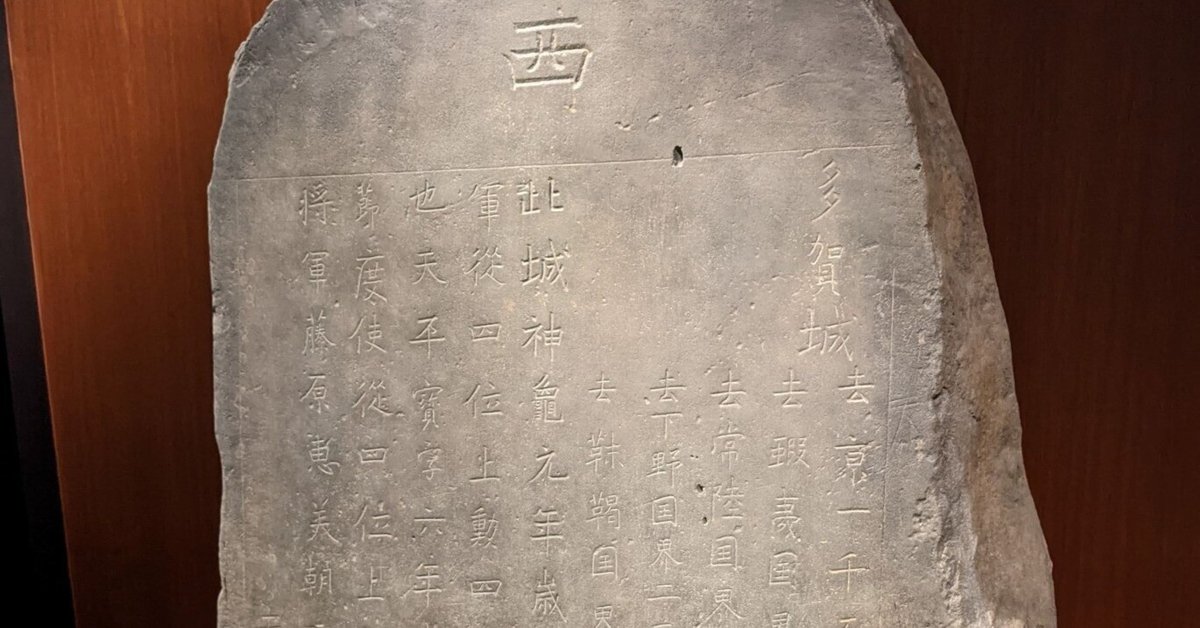 西
多賀城
去京一千
去蝦夷国
去常陸国界
去下野国界二
去靺鞨国界
此城神龜元年歳
軍從四位上勲四
也天平寶字六年
節度使從四位上
将軍藤原惠美朝